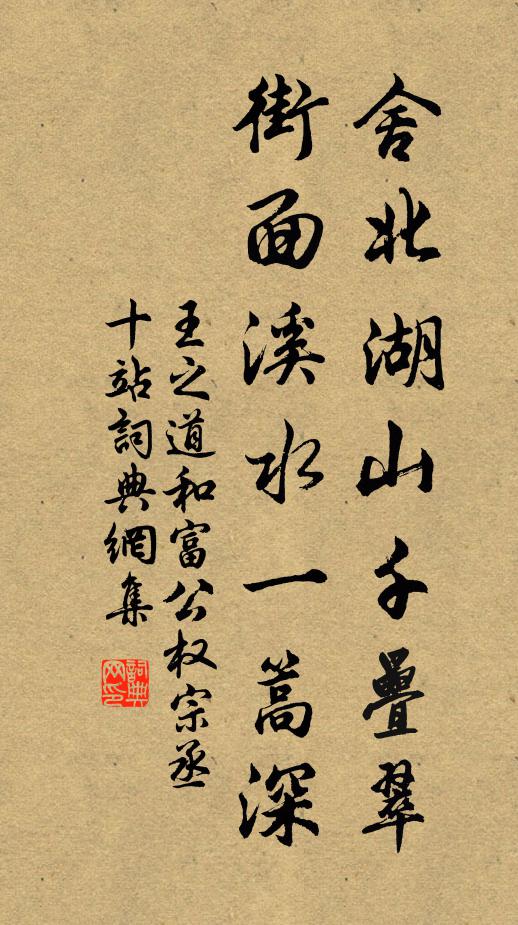 舍北湖山千疊翠
街面溪水一篙深
王之道和富公权宗丞
十站詞典網集
詞典网印